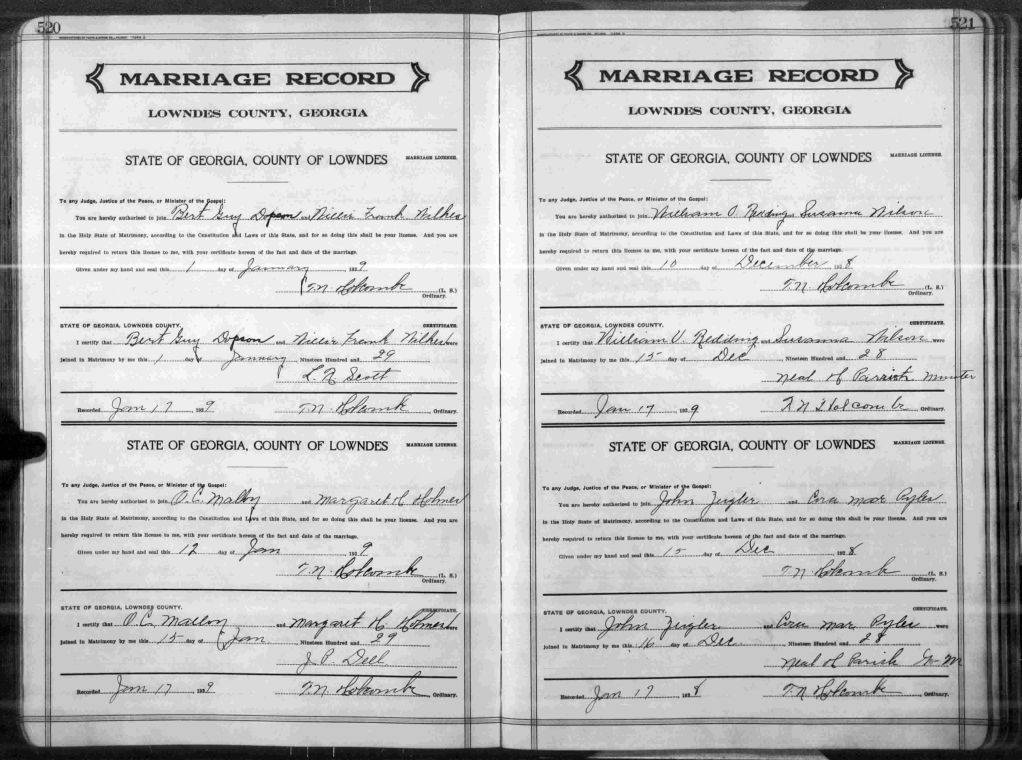 520
MARRIAGE RECORD
LOWNDES COUNTY, GEORGIA
STATE OF GEORGIA, COUNTY OF LOWNDES MARRIAGE LICENSE.
To any Judge, Justice of the Peace, or Minister of the Gospel:
You are hereby authorized to join Bert Guy Dopson and Willie Frank Wilkes
in the Holy State of Matrimony, according to the Constitution and Laws of this State, and for so doing this shall be your license. And you are
hereby required to return this license to me, with your certificate hereon of the fact and date of the marriage.
Given under my hand and seal this 1 day of January 1929
T. N. Holcombe (L. S.)
Ordinary.
STATE OF GEORGIA, LOWNDES COUNTY. CERTIFICATE.
I certify that Bert Guy Dopson and Willie Frank Wilkes were
joined in Matrimony by me this 1 day of January Nineteen Hundred and 29
L. R. Scott
Recorded Jan 17 1929 T. N. Holcomb Ordinary.
STATE OF GEORGIA, COUNTY OF LOWNDES MARRIAGE LICENSE.
To any Judge, Justice of the Peace, or Minister of the Gospel:
You are hereby authorized to join O. C. Malloy and Margaret H. Holmes
in the Holy State of Matrimony, according to the Constitution and Laws of this State, and for so doing this shall be your license. And you are
hereby required to return this license to me, with your certificate hereon of the fact and date of the marriage.
Given under my hand and seal this 12 day of Jan 1929
T. N. Holcombe (L. S.)
Ordinary.
STATE OF GEORGIA, LOWNDES COUNTY. CERTIFICATE.
I certify that O. C. Malloy and Margaret H. Holmes were
joined in Matrimony by me this 15 day of Jan Nineteen Hundred and 29
J. P. Dell
Recorded Jan 17 1929 T. N. Holcombe Ordinary.
521
MARRIAGE RECORD
LOWNDES COUNTY, GEORGIA
STATE OF GEORGIA, COUNTY OF LOWNDES MARRIAGE LICENSE.
To any Judge, Justice of the Peace, or Minister of the Gospel:
You are hereby authorized to join William O. Redding and Susanna Wilson
in the Holy State of Matrimony, according to the Constitution and Laws of this State, and for so doing this shall be your license. And you are
hereby required to return this license to me, with your certificate hereon of the fact and date of the marriage.
Given under my hand and seal this 10 day of December 1928
T. N. Holcombe (L. S.)
Ordinary.
STATE OF GEORGIA, LOWNDES COUNTY. CERTIFICATE.
I certify that William V Redding and Susanna Wilson were
joined in Matrimony by me this 15 day of Dec Nineteen Hundred and 28
Neal of Parrish Minister
Recorded Jan 17 1929 T N Holcombe Ordinary.
STATE OF GEORGIA, COUNTY OF LOWNDES MARRIAGE LICENSE.
To any Judge, Justice of the Peace, or Minister of the Gospel:
You are hereby authorized to join John Zeigler and Cora Mae Pyles
in the Holy State of Matrimony, according to the Constitution and Laws of this State, and for so doing this shall be your license. And you are
hereby required to return this license to me, with your certificate hereon of the fact and date of the marriage.
Given under my hand and seal this 15 day of Dec 1928
T. N. Holcomb (L. S.)
Ordinary.
STATE OF GEORGIA, LOWNDES COUNTY. CERTIFICATE.
I certify that John Zeigler and Cora Mae Pyles were
joined in Matrimony by me this 16 day of Dec Nineteen Hundred and 28
Neal of Parish M
Recorded Jan 17 1928 T. N. Holcombe Ordinary.